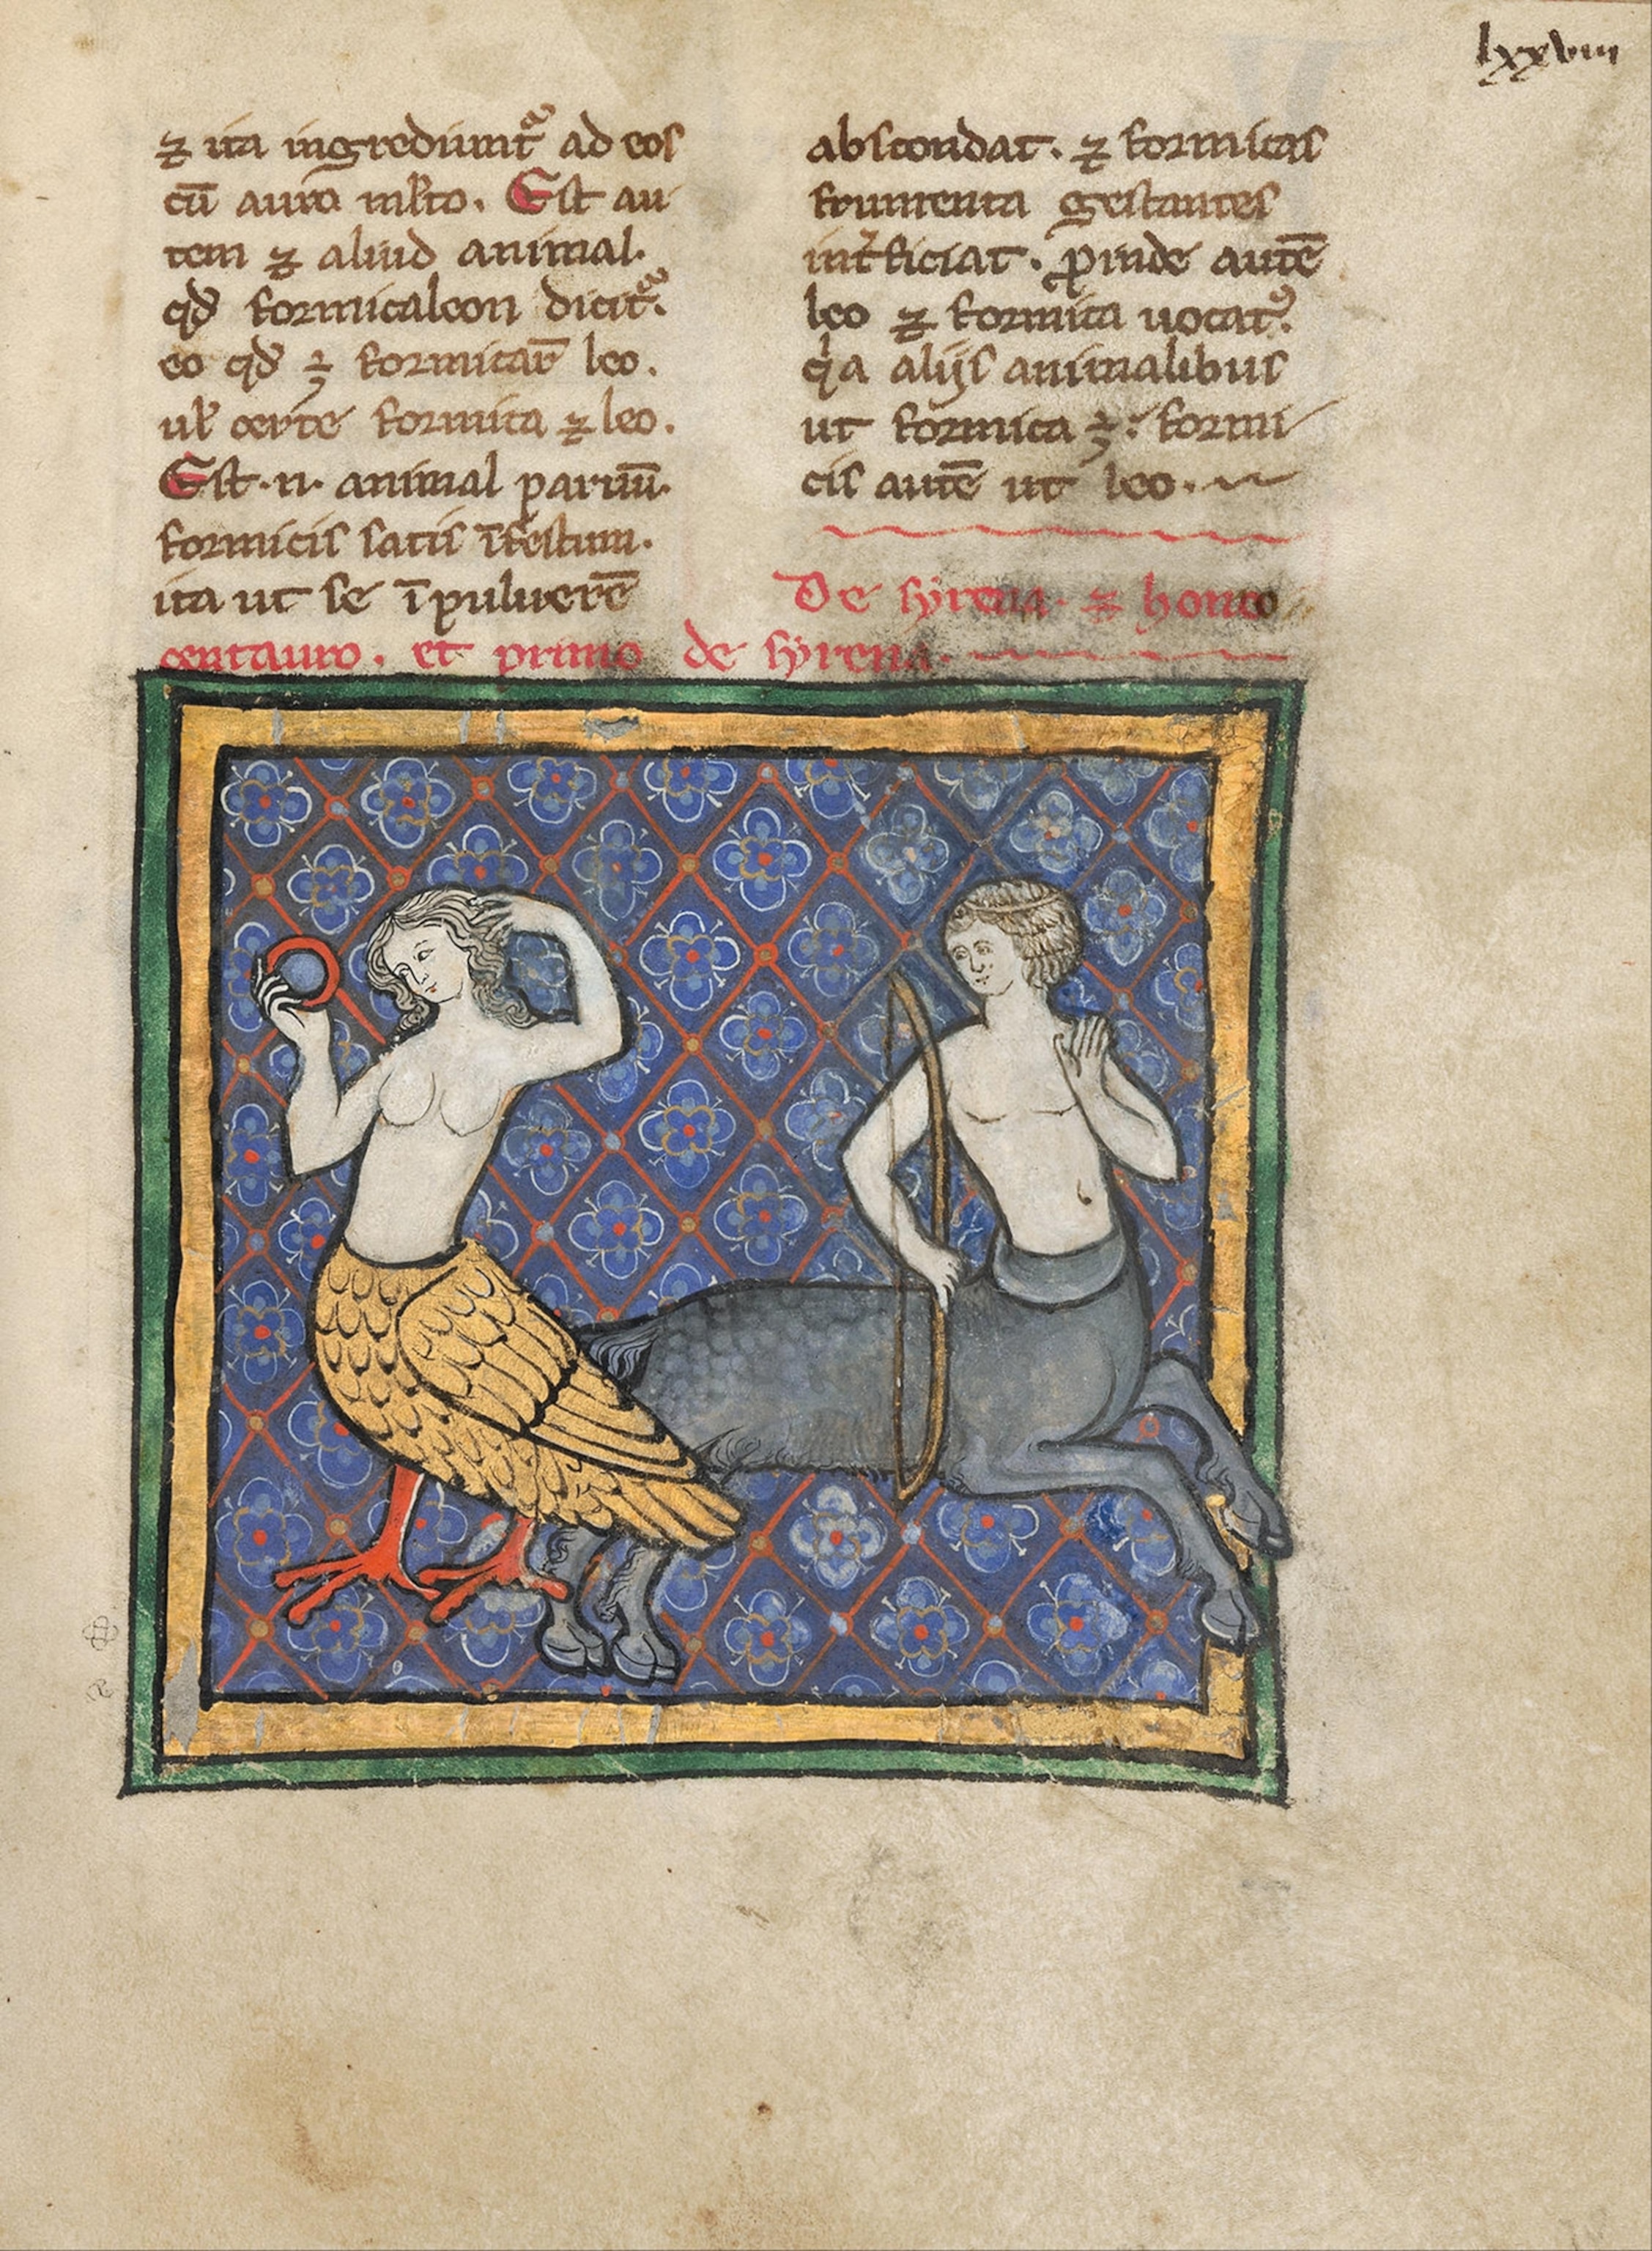 lxxviii
⁊ ita ingrediunt᷑ ad eos
cū auro ml̅to. Est au
tem ⁊ aliud animal.
qđ formicaleon dicit᷑.
eo qđ ÷ formicar̄ leo.
ul̅ certe formica ⁊ leo.
Est .n. animal paruū.
formicis satis īfestum.
ita ut se ī puluerē
abscondat. ⁊ formicas
frumenta gestantes
int͛ficiat. ꝓinde autē
leo ⁊ formica uocat᷑.
qͥa alijs animalibus
ut formica ÷: formi
cis autē ut leo.
De syrena. ⁊ hono
centauro. et primo de syrena.